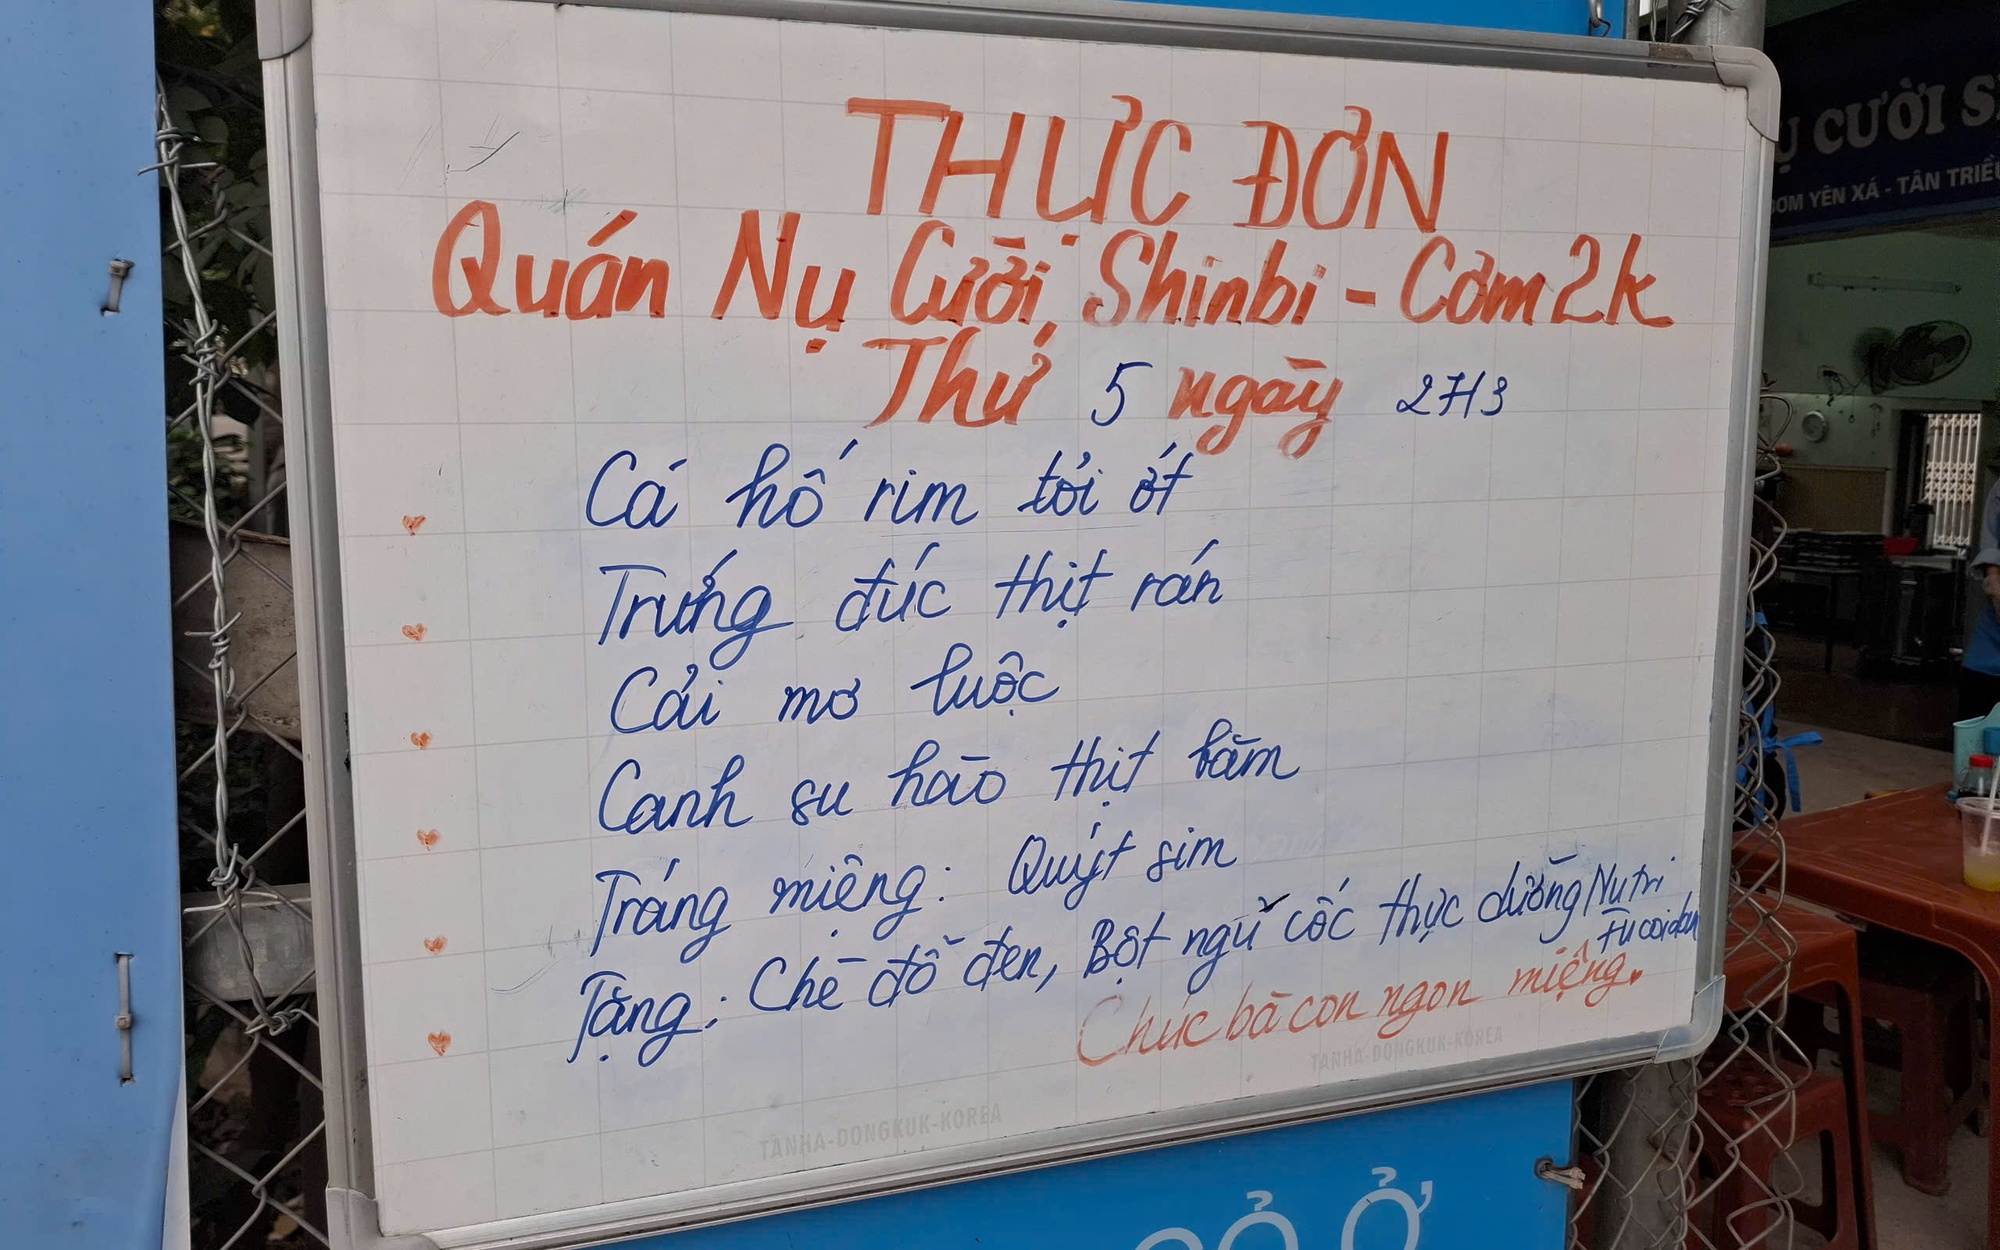 THỰC ĐƠN
Quán Nụ Cười Shinbi - Cơm 2k
Thứ 5 ngày 27/3
Cá hố rim tỏi ớt
Trứng đúc thịt rán
Cải mơ luộc
Canh su hào thịt băm
Tráng miệng: Quýt sim
Tặng: Chè đỗ đen, Bột ngũ cốc thực dưỡng Nutri
Fucoidan
Chúc bà con ngon miệng.
TANHA-DONGKUK-KOREA
TANHA-DONGKUK-KOREA
Ụ CƯỜI S
BƠM YÊN XÁ - TÂN TRIỀU